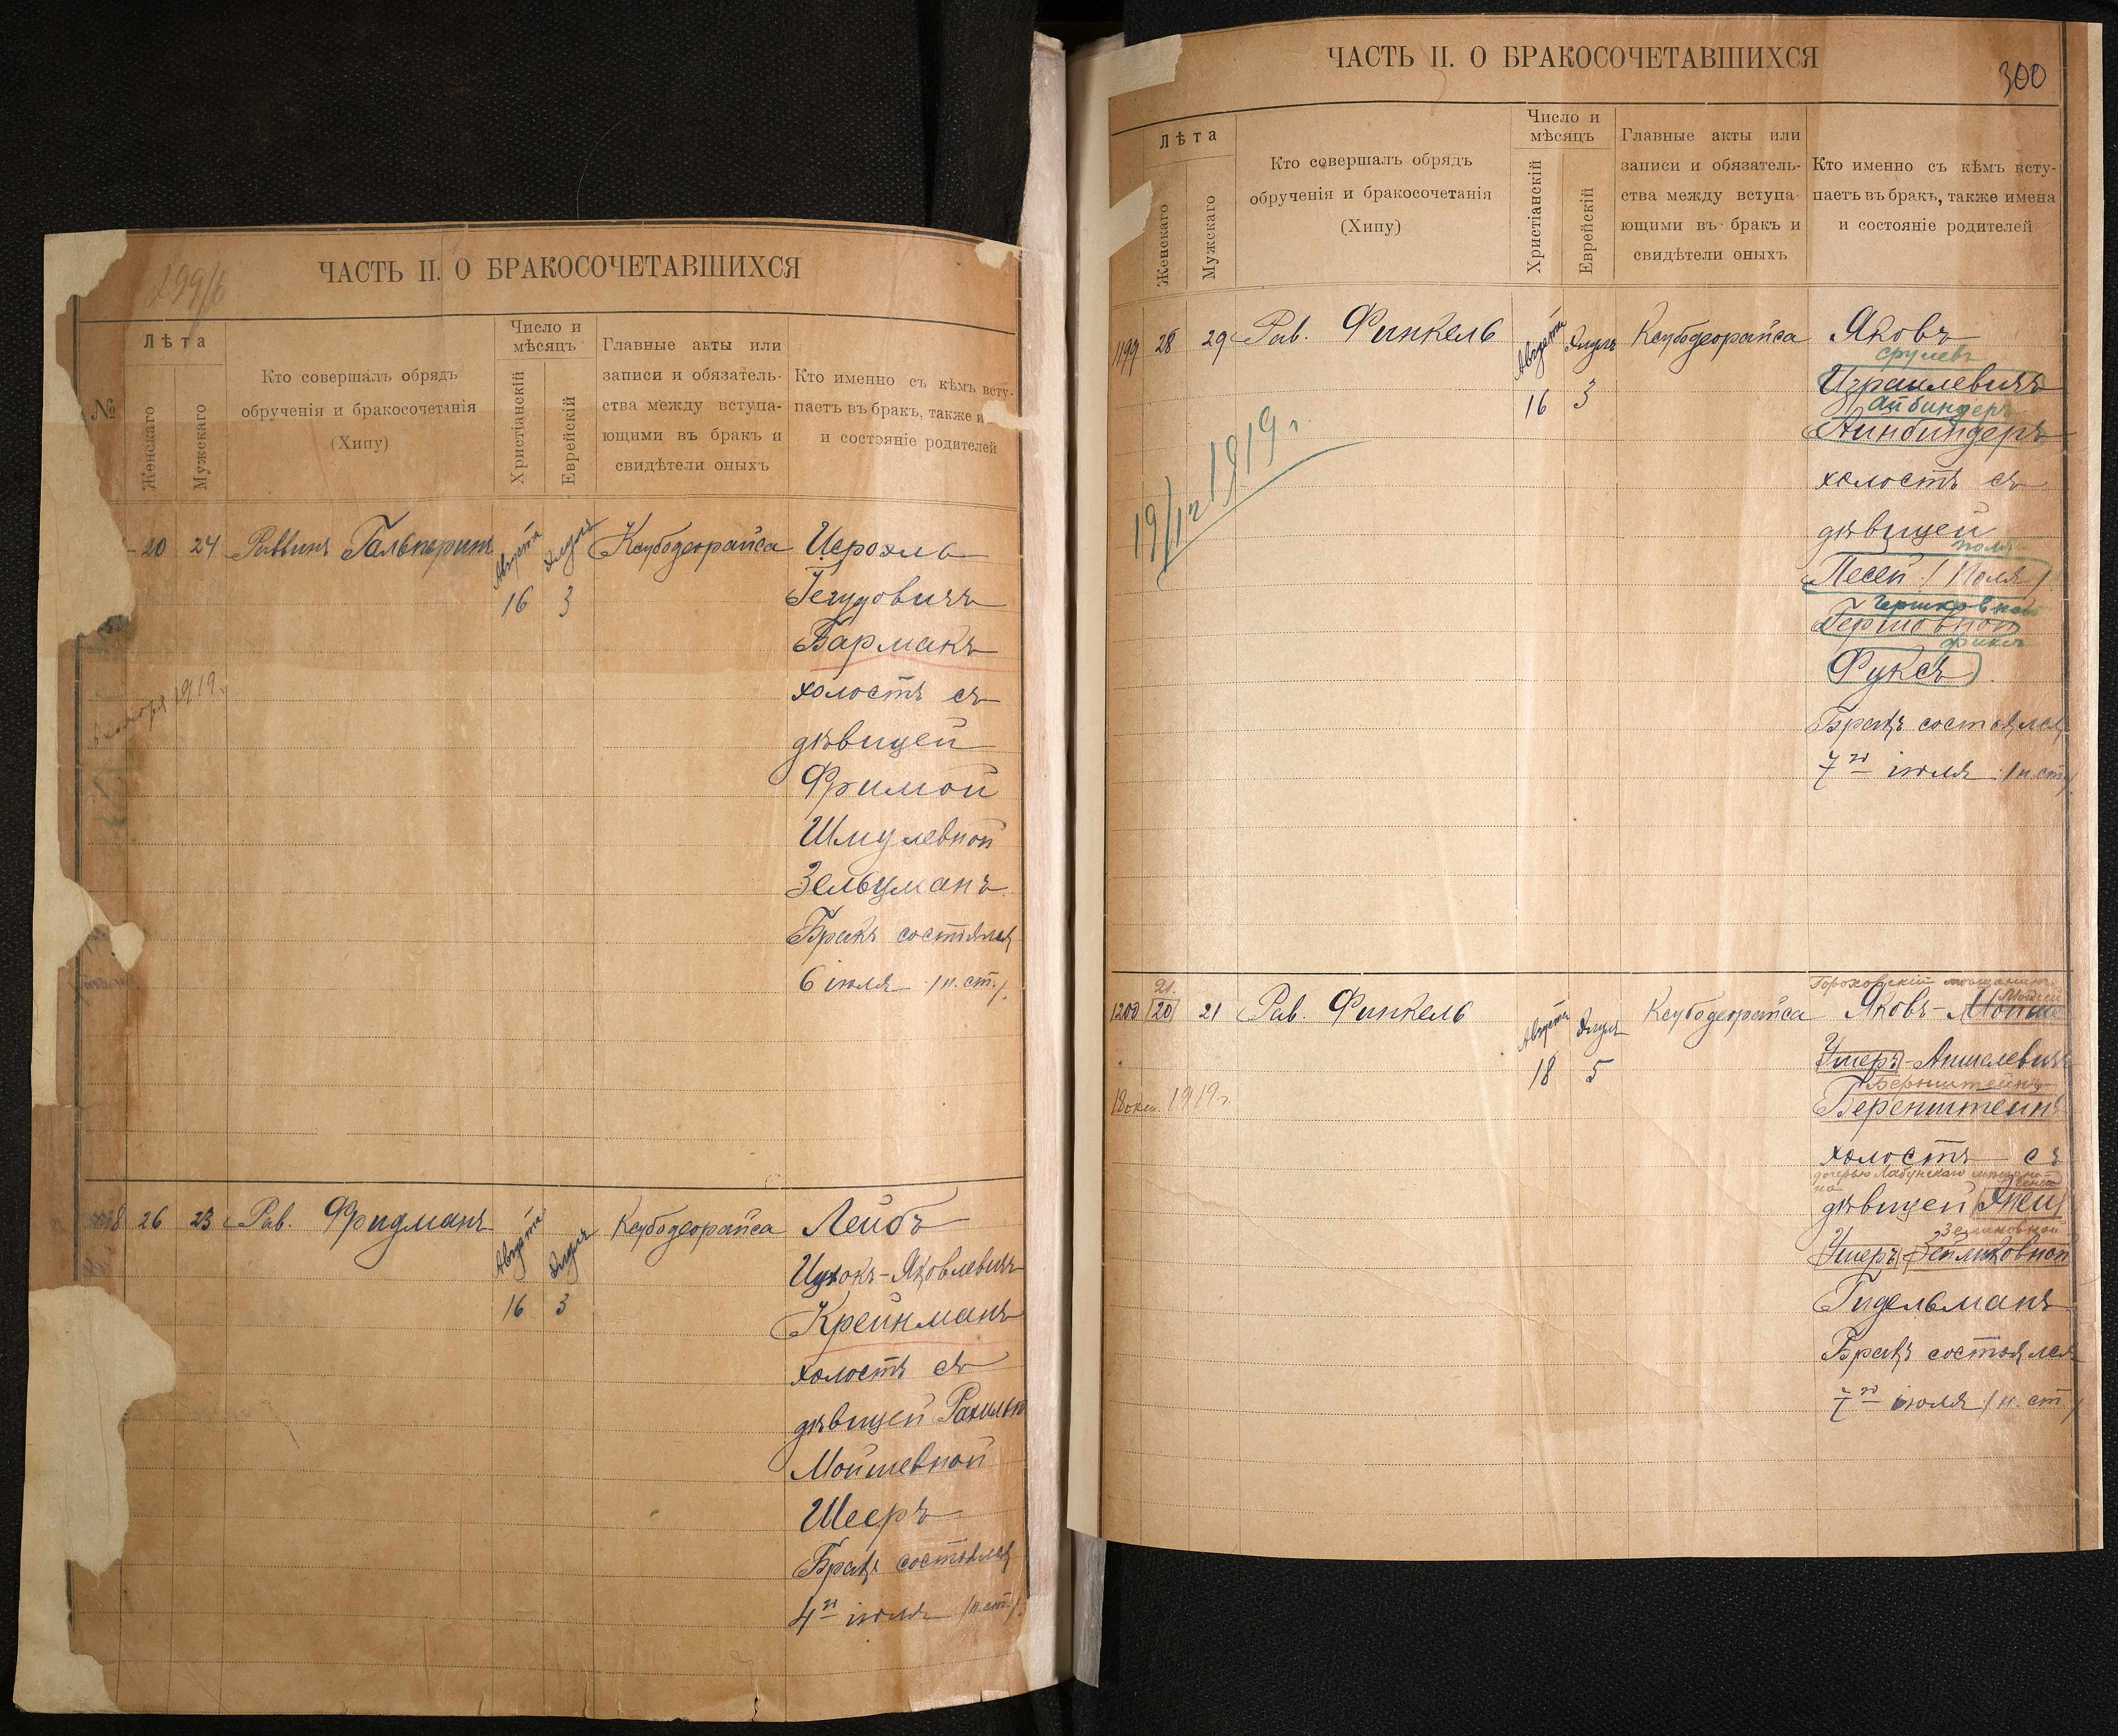 299/б
ЧАСТЬ II. О БРАКОСОЧЕТАВШИХСЯ
№
Лѣта
Женскаго
Мужскаго
Кто совершалъ обрядъ
обрученія и бракосочетанія
(Хипу)
Число и
мѣсяцъ
Христіанскій
Еврейскій
Главные акты или
записи и обязатель-
ства между вступа-
ющими въ бракъ и
свидѣтели оныхъ
Кто именно съ кѣмъ всту-
паетъ въ бракъ, также и
и состояніе родителей
20 24 Раввинъ Гальперинъ Августа Элулъ Ксубодеорайса Иерохмъ
16 3
Гегудовичъ
Бармакъ
холостъ съ
дѣвицей
Фримой
Шмулевной
Зельцманъ
Бракъ состоялся
6 іюля /н. ст./
1919г.
8 26 23 Рав. Фридманъ Августа Элулъ Ксубодеорайса Лейбъ
16 3
Ицхокъ-Яковлевичъ
Крейнманъ
холостъ съ
дѣвицей Рахилью
Мойшевной
Шееръ
Бракъ состоялся
4го іюля /н. ст./
ЧАСТЬ II. О БРАКОСОЧЕТАВШИХСЯ
300
Лѣта
Женскаго
Мужскаго
Кто совершалъ обрядъ
обрученія и бракосочетанія
(Хипу)
Число и
мѣсяцъ
Христіанскій
Еврейскій
Главные акты или
записи и обязатель-
ства между вступа-
ющими въ бракъ и
свидѣтели оныхъ
Кто именно съ кѣмъ всту-
паетъ въ бракъ, также имена
и состояніе родителей
1199 28 29 Рав. Финкель Августа Элулъ Ксубодеорайса Яковъ
16 3
срулевъ
Израилевичъ
Айбиндеръ
Айнбиндеръ
холостъ съ
дѣвицей
Песей /Поля/
Гершковной
Гершовной
Фуксъ
Бракъ состоялся
7го іюля /н. ст./
19/12 1919г.
21.
Гороховскій мѣщанинъ
1200 20 21 Рав. Финкель Августа Элулъ Ксубодеорайса Яковъ-Мойше
18 5
Ушеръ-Аншелевичъ
Бернштейнъ
Беренштейнъ
18 окт. 1919г.
холостъ съ
дочерью Лабунскаго
дѣвицей
Зеликовной
Ушеръ-Зейликовной
Гидельманъ
Бракъ состоялся
7го іюля /н. ст/